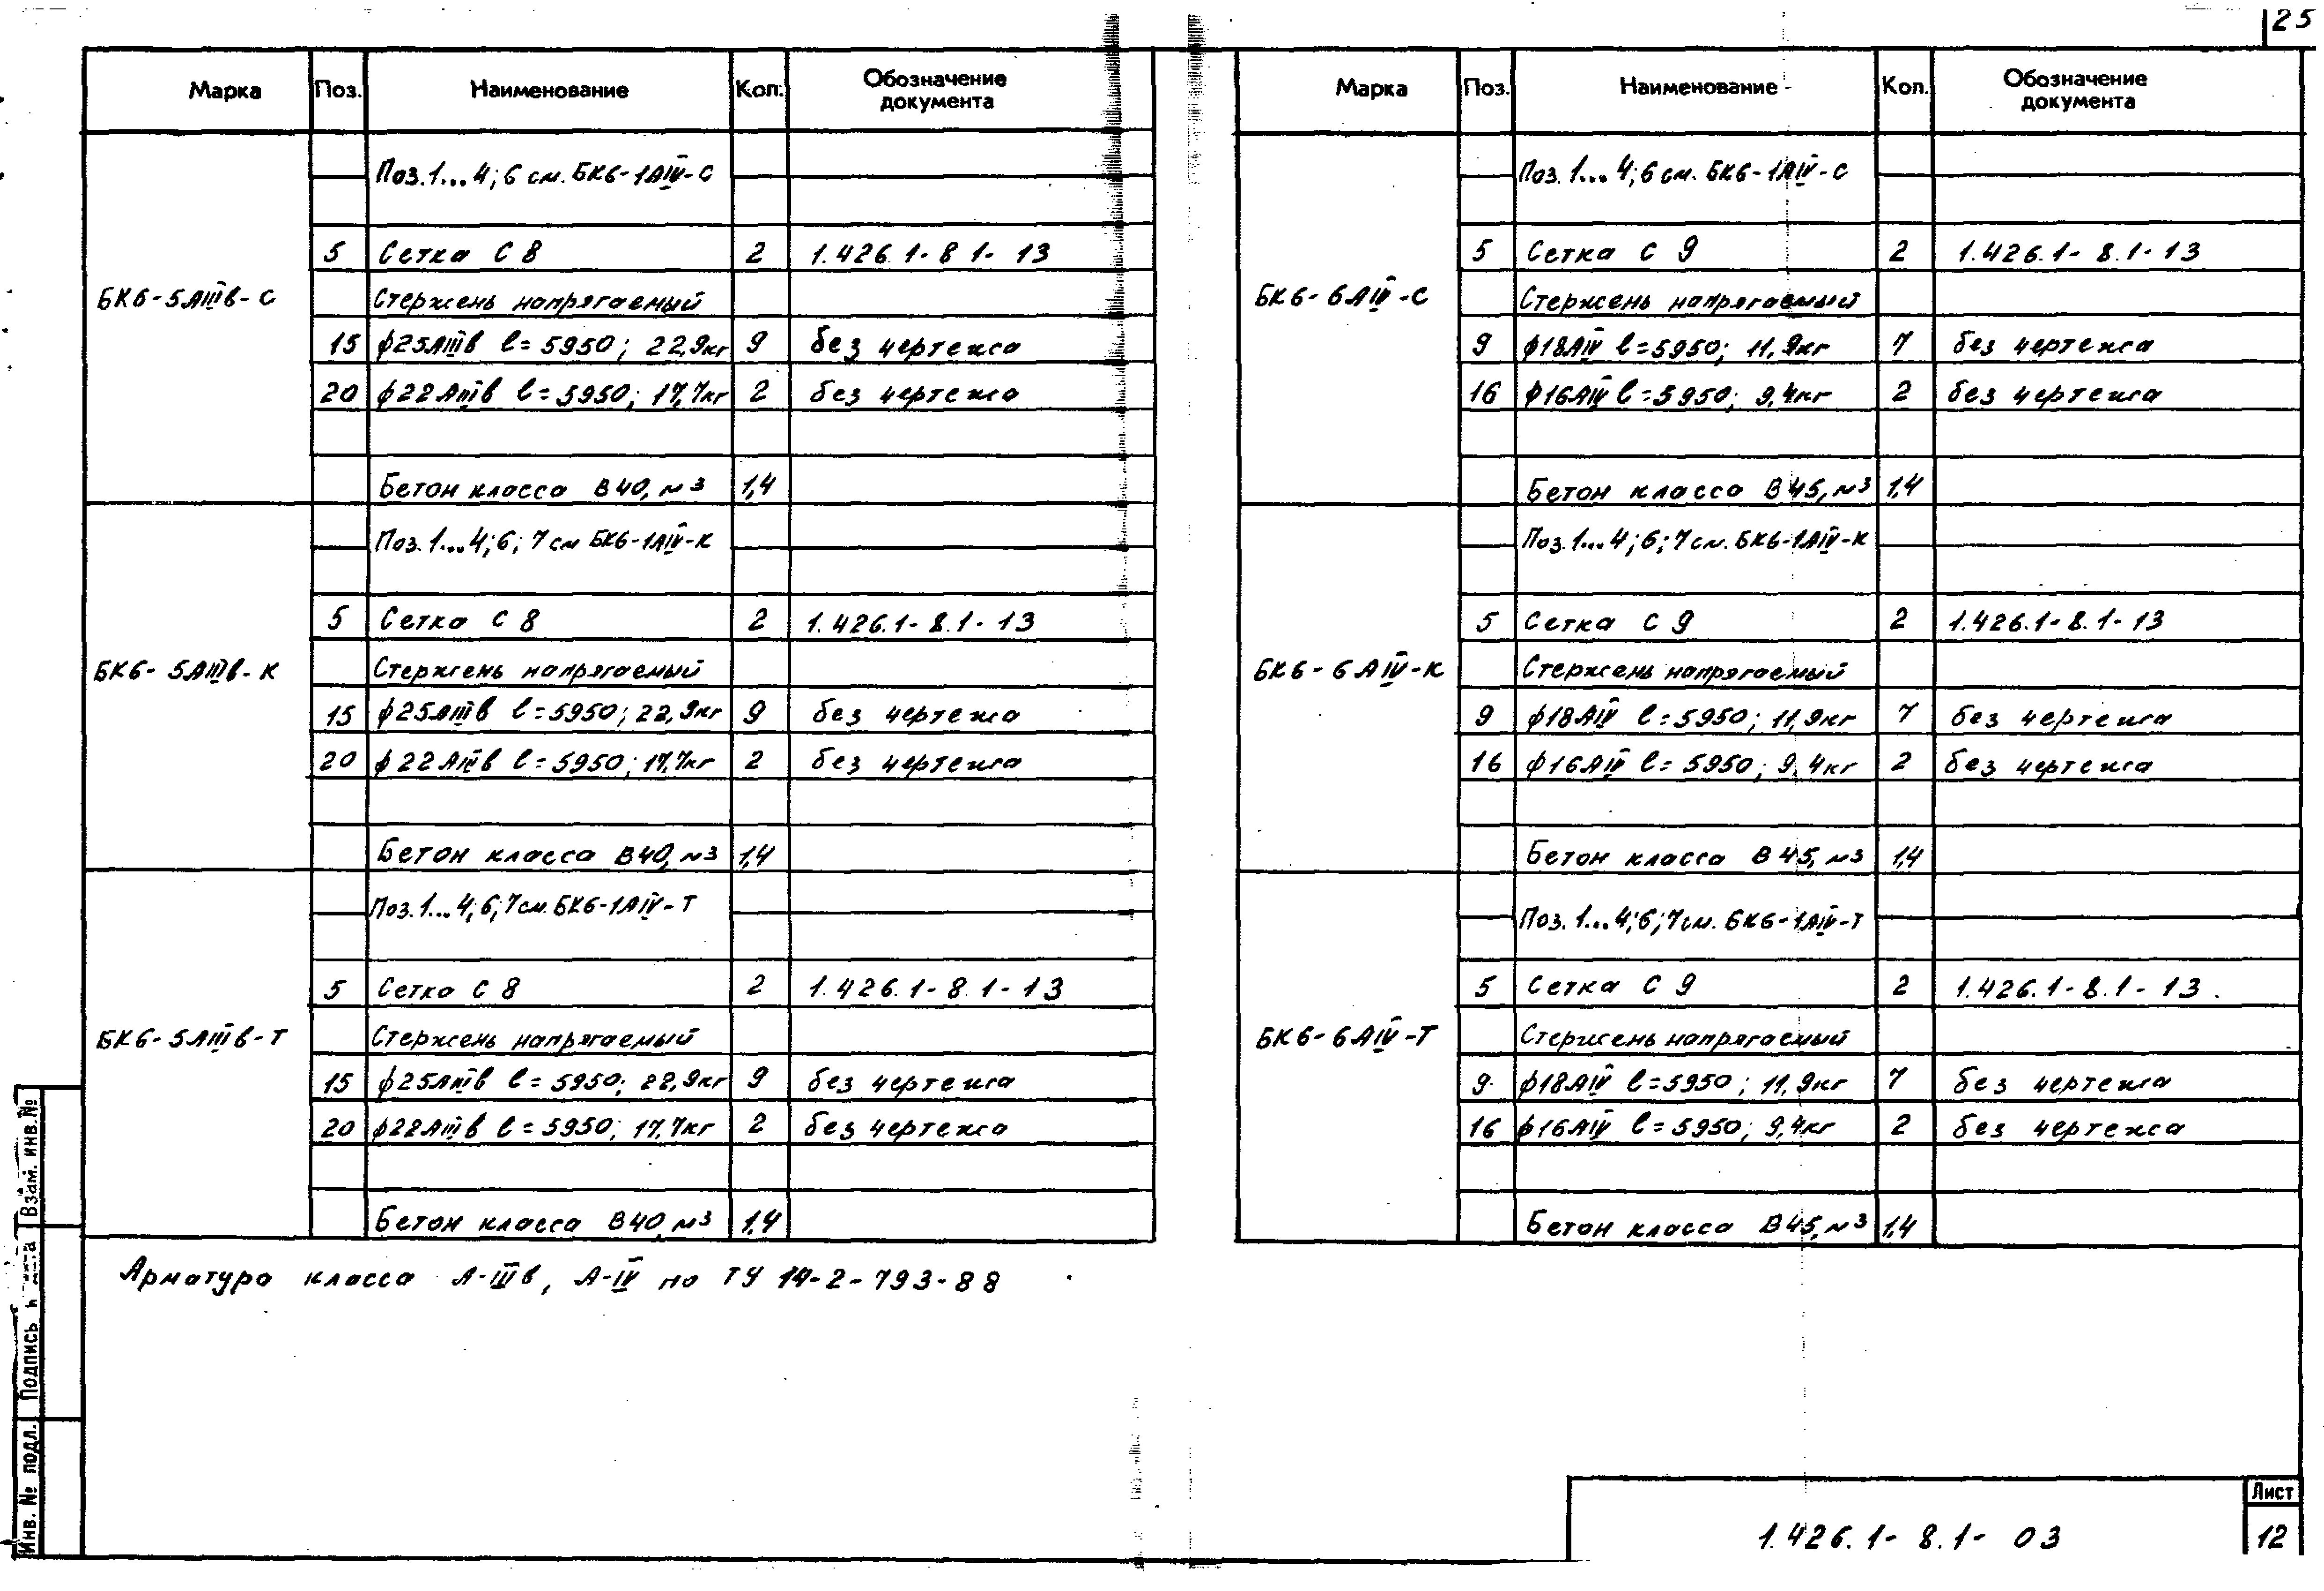 25
Марка Поз. Наименование Кол. Обозначение документа
Поз. 1... 4; 6 см. БК6-1АIV-С
5 Сетка С 8 2 1.426.1-8 1-13
БК6-5АIIIв-С Стержень напрягаемый
15 ф25АIIIв ℓ=5950; 22,9кг 9 без чертежа
20 ф22АIIIв ℓ=5950; 17,7кг 2 без чертежа
Бетон класса В40, м3 1,4
Поз. 1... 4; 6; 7 см БК6-1АIV-К
5 Сетка С 8 2 1.426.1-8.1-13
БК6-5АIIIв-К Стержень напрягаемый
15 ф25АIIIв ℓ=5950; 22,9кг 9 без чертежа
20 ф22АIIIв ℓ=5950; 17,7кг 2 без чертежа
Бетон класса В40, м3 1,4
Поз. 1... 4; 6; 7 см. БК6-1АIV-Т
5 Сетка С 8 2 1.426.1-8.1-13
БК6-5АIIIв-Т Стержень напрягаемый
15 ф25АIIIв ℓ=5950; 22,9кг 9 без чертежа
20 ф22АIIIв ℓ=5950; 17,7кг 2 без чертежа
Бетон класса В40, м3 1,4
Арматура класса А-IIIв, А-IV по ТУ 14-2-793-88
Марка Поз. Наименование Кол. Обозначение документа
Поз. 1... 4; 6 см. БК6-1АIV-С
5 Сетка С 9 2 1.426.1-8.1-13
БК6-6АIV-С Стержень напрягаемый
9 ф18АIV ℓ=5950; 11,9кг 7 без чертежа
16 ф16АIV ℓ=5950; 9,4кг 2 без чертежа
Бетон класса В45, м3 1,4
Поз. 1... 4; 6; 7 см. БК6-1АIV-К
5 Сетка С 9 2 1.426.1-8.1-13
БК6-6АIV-К Стержень напрягаемый
9 ф18АIV ℓ=5950; 11,9кг 7 без чертежа
16 ф16АIV ℓ=5950; 9,4кг 2 без чертежа
Бетон класса В45, м3 1,4
Поз. 1... 4; 6; 7 см. БК6-1АIV-Т
5 Сетка С 9 2 1.426.1-8.1-13
БК6-6АIV-Т Стержень напрягаемый
9 ф18АIV ℓ=5950; 11,9кг 7 без чертежа
16 ф16АIV ℓ=5950; 9,4кг 2 без чертежа
Бетон класса В45, м3 1,4
Инв. № подл. Подпись и дата Взам. инв. №
1.426.1-8.1-03
Лист
12